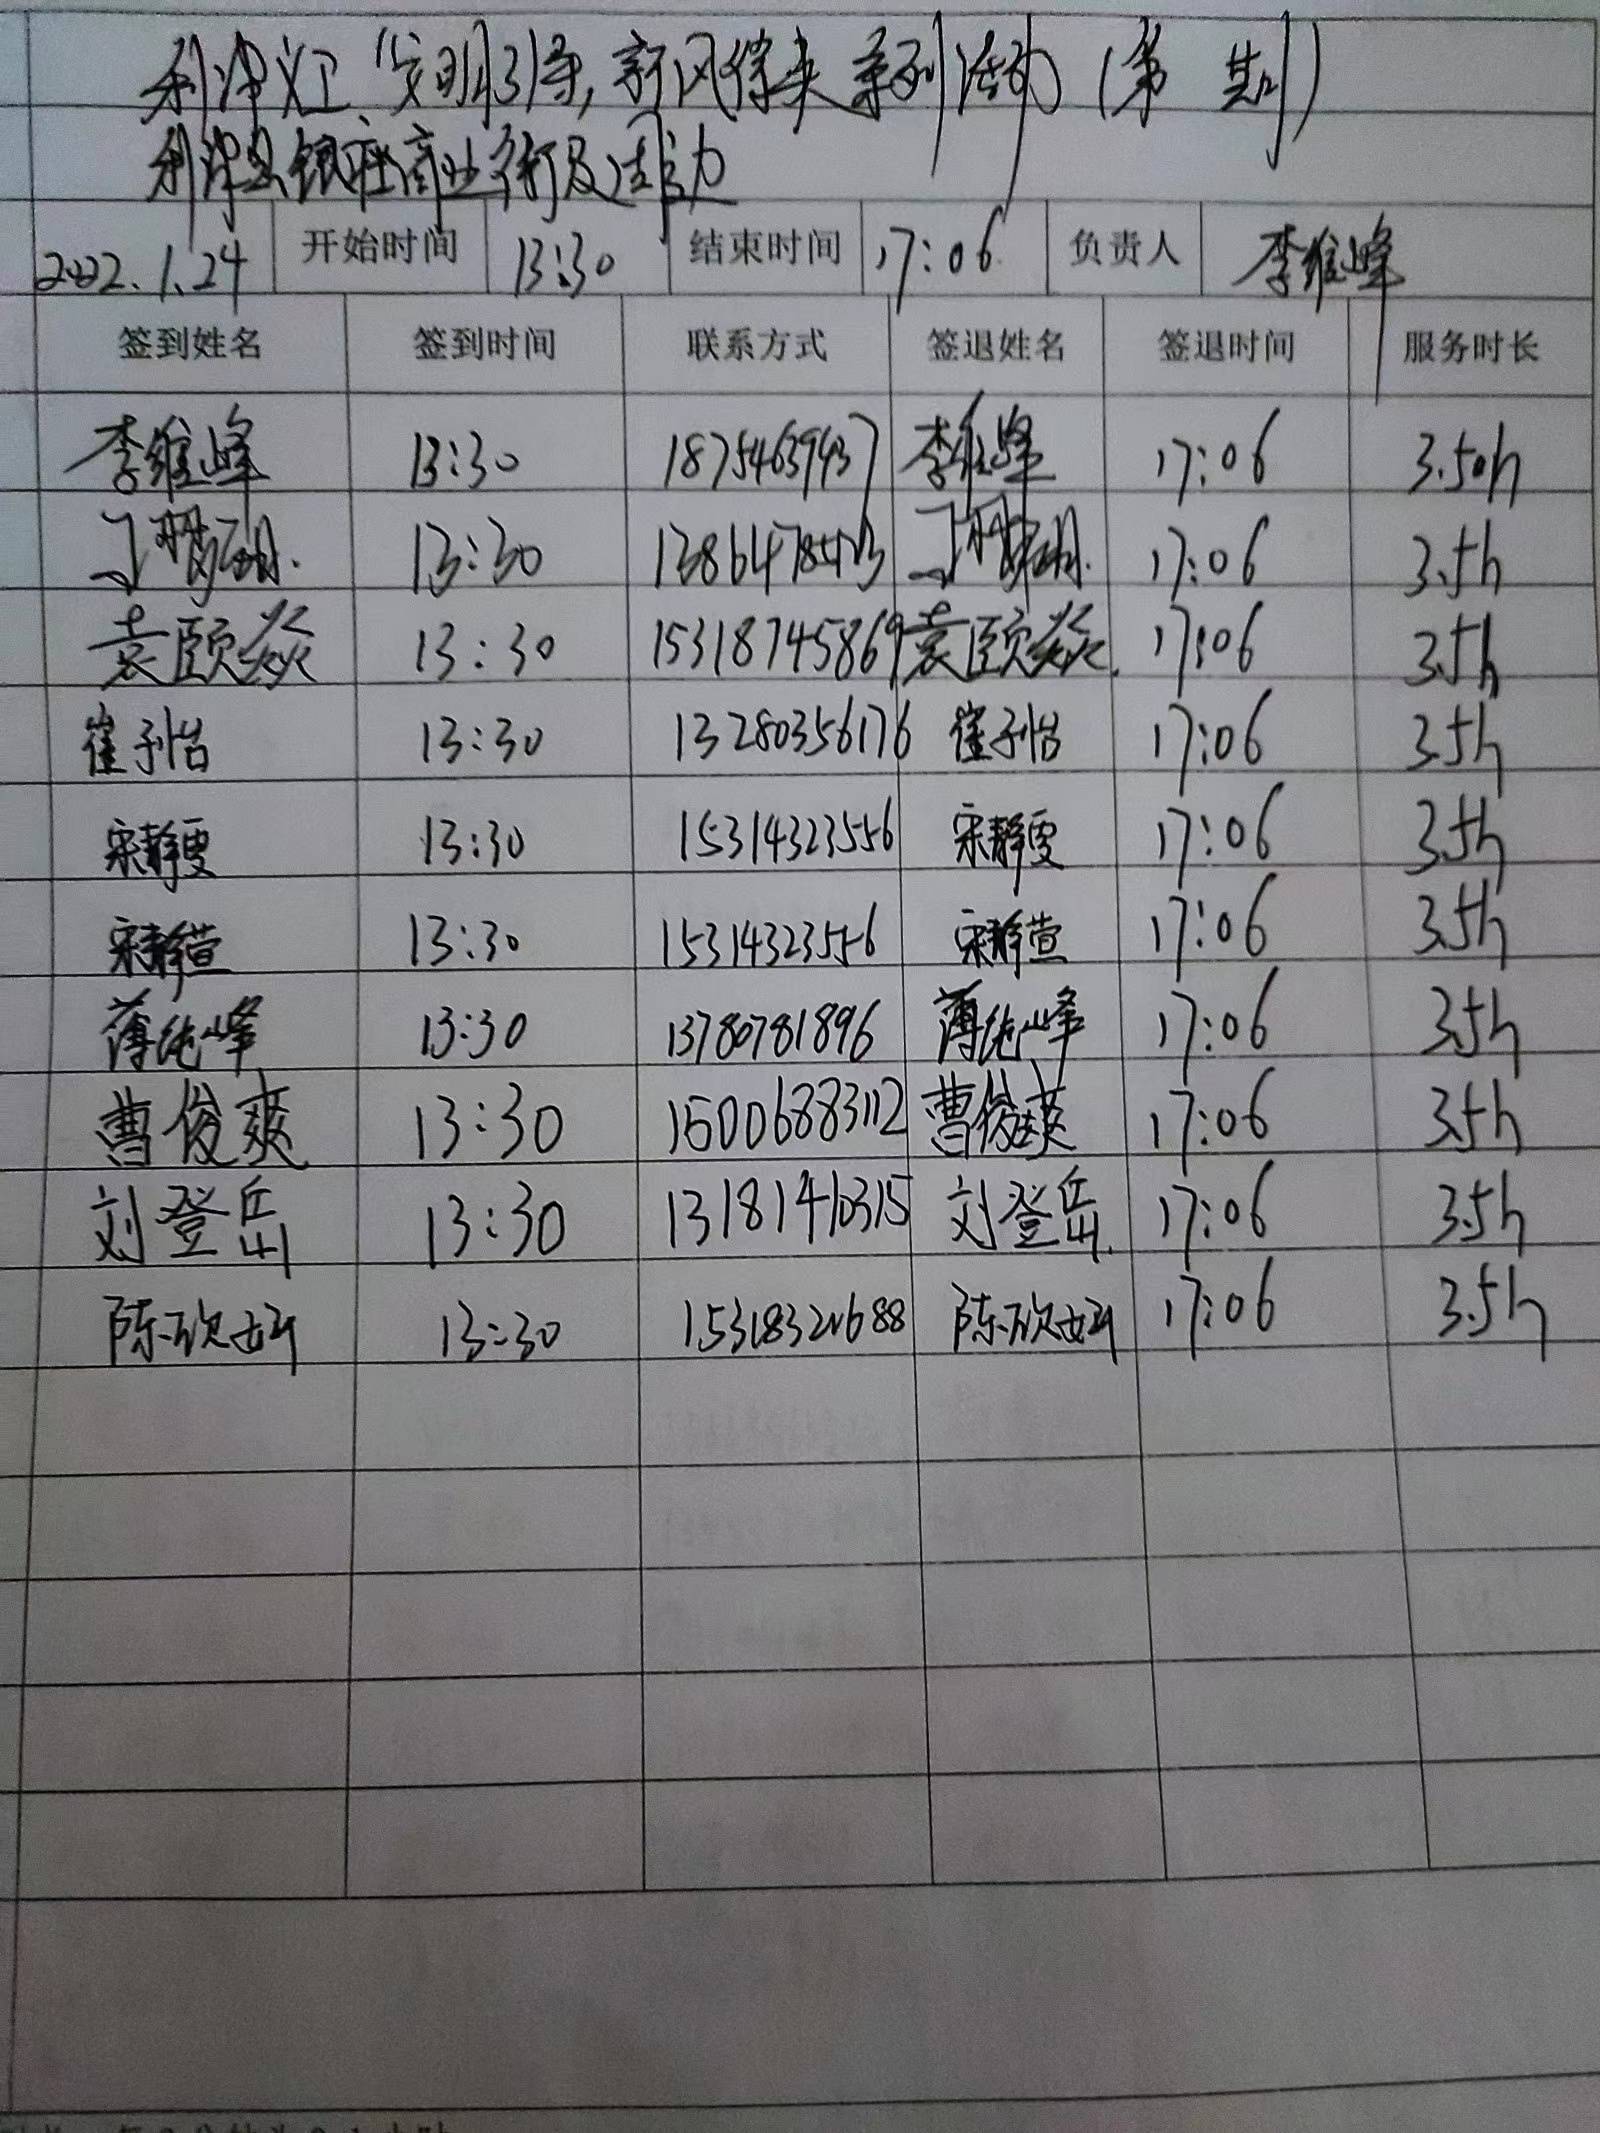 利津义工"文明引条,新风徐来系列活动(第 期)
利津县银座商业街及周边
2022.1.24 开始时间 13:30 结束时间 17:06 负责人 李维峰
签到姓名 签到时间 联系方式 签退姓名 签退时间 服务时长
李维峰 13:30 李维峰 17:06 3.50h
13:30 17:06 3.5h
袁颐焱 13:30 15318745869 袁颐焱 17:06 3.5h
崔子怡 13:30 13280356176 崔子怡 17:06 3.5h
宋静雯 13:30 15314323556 宋静雯 17:06 3.5h
宋静萱 13:30 15314323556 宋静萱 17:06 3.5h
薄纯峰 13:30 13780781896 薄纯峰 17:06 3.5h
曹俊爽 13:30 15006883112 曹俊爽 17:06 3.5h
刘登岳 13:30 13181410315 刘登岳 17:06 3.5h
陈欣妍 13:30 陈欣妍 17:06 3.5h